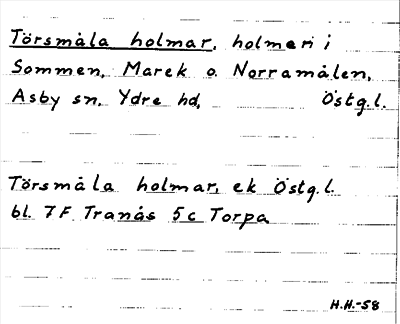 Törsmåla holmar, holmeri i
Sommen, Marek o. Norramålen,
Asby sn, Ydre hd, Östg.l.
Törsmåla holmar, ek Östg.l.
bl. 7F Tranås 5c Torpa
H.H.-58